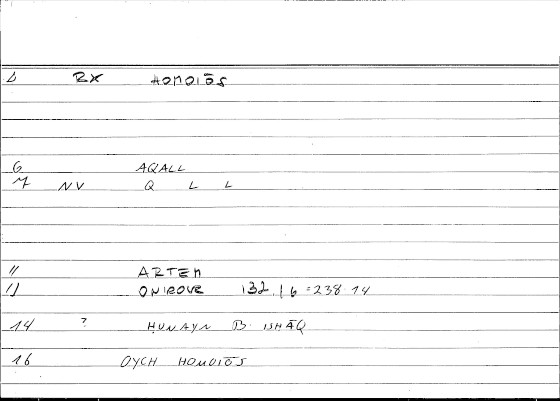 RX HOMOIŌS
6 AQALL
7 NV Q L L
11 ARTEM
ONIROVR 132, 16 = 238 14
14 ? ḤUNAYN B. ISḤĀQ
16 OYCH HOMOIŌS